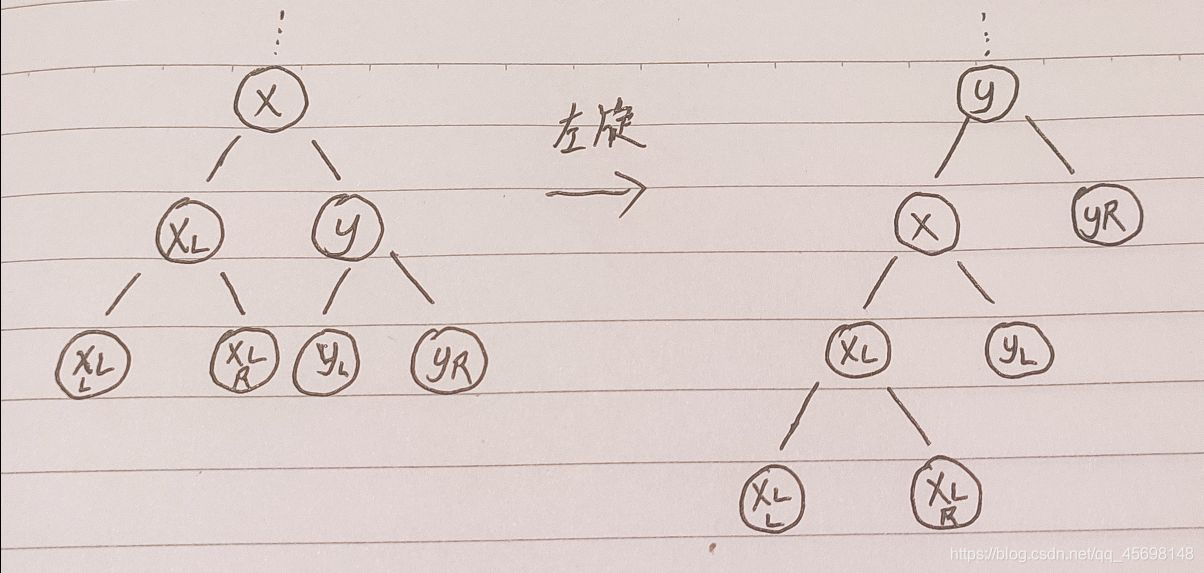 X
左旋
y
XL
y
X
yR
XLL
XLR
yL
yR
XL
yL
XLL
XLR
https://blog.csdn.net/qq_45698148